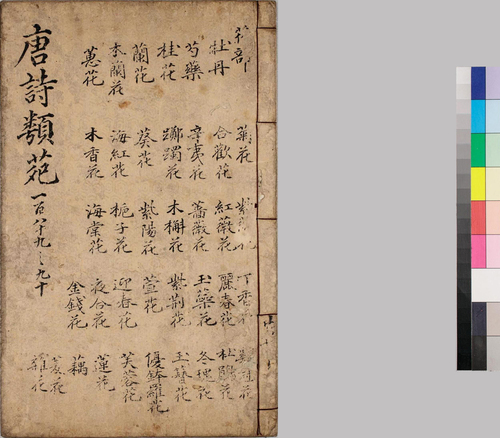 部 菊花
牡丹 合歡花 紅薇花 麗春花 杜鵑花
芍藥 辛夷花 薔薇花 玉蘂花
桂花 躑躅花 木槲花 紫荊花 玉簪花
蘭花 葵花 紫陽花 萱花 優鉢羅花
木蘭花 海紅花 梔子花 迎春花 芙蓉花
蕙花 木香花 海棠花 夜合花 蓮花
金錢花 藕
菱花
雜花
唐詩類苑 一百八十九之九十